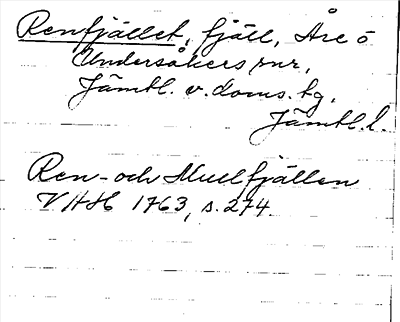 Renfjället, fjäll, Åre o
Undersåkers snr,
Jämtl. v. doms. tg,
Jämtl. l.
Ren- och Muelfjällen
VHH 1763, s. 274.